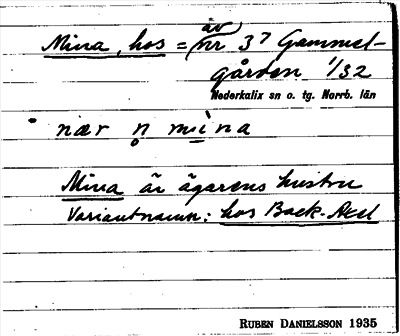 Mina, hos = av nr 3⁷ Gammel-
gården 1/32
Nederkalix sn o. tg. Norrb. län
nær n̥ mina
Mina är ägarens hustru
Variantnamn: hos Back-Axel
RUBEN DANIELSSON 1935